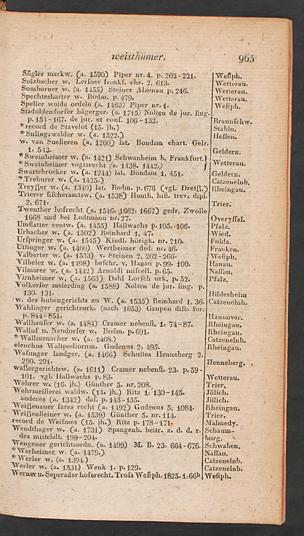 weisthümer. 965
Sögler markw. (a. 1590) Piper nr. 4. p. 202-221. Westph.
Solzbacher w. Lersner frankf. chr. 2, 613. Wetterau.
Somborner w. (a. 1455) Steiner Alzenau p. 246. Wetterau.
Spechtesharter w. Bodm. p. 479. Wetterau.
Speller wolde ordele (a. 1465) Piper nr. 1. Westph.
Stadoldendorfer hägergor. (a. 1715) Nolten de jur. sing.
p. 151-167. de jur. et conf. 106-132. Braunschw.
* record de Stavelot (15. jh.) Stablo.
* Sulingswalder w. (a. 1522.) Hessen.
w. van Suelleren (a. 1260) lat. Bondam chart. Gelr.
1. 543. Geldern.
* Sweinheimer w. (a. 1421) Schwanheim b. Frankfurt.
* Sweinheimer vogtsrecht (a. 1438. 1442.) Wetterau.
Swartebröcker w. (a. 1241) lat. Bondam 1, 451. Geldern.
* Treburer w. (a. 1425.) Catzenelnb.
Treysser w. (a. 1349) lat. Bodm. p. 676 (vgl. Dreiss.) Rheingau.
Trierer fischeramtsw. (a. 1538) Honth. hist. trev. dipl.
2, 671. Trier.
Twenther hofrecht (a. 1546. 1662. 1667) gedr. Zwolle
1668 und bei Lodtmann nr. 27. Overyssel.
Umstatter centw. (a. 1455) Hallwachs p. 105. 106. Pfalz.
Urbacher w. (a. 1502) Reinhard 1, 47. Wied.
Urspringer w. (a. 1545) Kindl. hörigk. nr. 210. Fulda.
Ettinger w. (a. 1460) Wertheimer ded. nr. 46. Franken.
Walberter w. (a. 1533) v. Steinen 2, 262-266. Westph.
Wilbeler w. (a. 1298) beschr. v. Hanau p. 99. 100. Hanau.
Wilmarer w. (a. 1442) Arnoldi miscell. p. 65. Nassau.
Winheimer w. (a. 1563) Dahl Lorsch urk. p. 52. Pfalz.
Volkerser meierding (a. 1588) Nolten de jur. sing. p.
130. 131. Hildesheim
w. des hubengerichts zu W. (a. 1535) Reinhard 1, 36. Catzenelnb.
Wahlinger gerichtsurk. (nach 1653) Grupen disc. for.
p. 844-851. Hannover.
Wallhauser w. (a. 1484) Cramer nebenst. 1. 74-87. Rheingau.
Walluf u. Neudorfer w. Bodm. p. 691. Rheingau.
* Wallmenacher w. (a. 1408.) Catzenelnb.
elenchus Walpeslorum. Gudenus 2, 495. Rheingau.
Wasunger landger. (a. 1466) Schultes Henneberg 2.
290. 291. Henneberg.
wassergerichtsw. (a. 1611) Cramer nebenst. 23. p. 59-
101. vgl Hallwachs p. 83. Wetterau.
Wehrer w. (16. jh.) Günther 5. nr. 208. Trier.
Wehrmeisterei waldw. (14. jh.) Ritz 1. 130-145. Jülich.
anderes (a. 1342) das. p. 145-155. Jülich.
weissenauer fares recht (a. 1492) Gudenus 5, 1084. Rheingau.
Weissweilerer w. (a. 1539) Günther 5. nr. 114. Trier.
record de Weismes (15. jh.) Ritz p. 178-171. Malmedy.
Wendthager w. (a. 1731) Spangenb. beitr. z. d. d. r. Schaum-
des mittelalt. 199-204. burg.
Wengener gerichtsordn. (a. 1499) M. B. 23. 664-676. Schwaben.
* Werheimer w. (a. 1479.) Nassau.
* Werler w. (a. 1394) Catzenelnb.
Werler w. (a. 1531) Wenk 1. p. 129. Catzenelnb.
Werner u. Seperader hofsrecht. Tross Westph. 1825. 166b Westph.